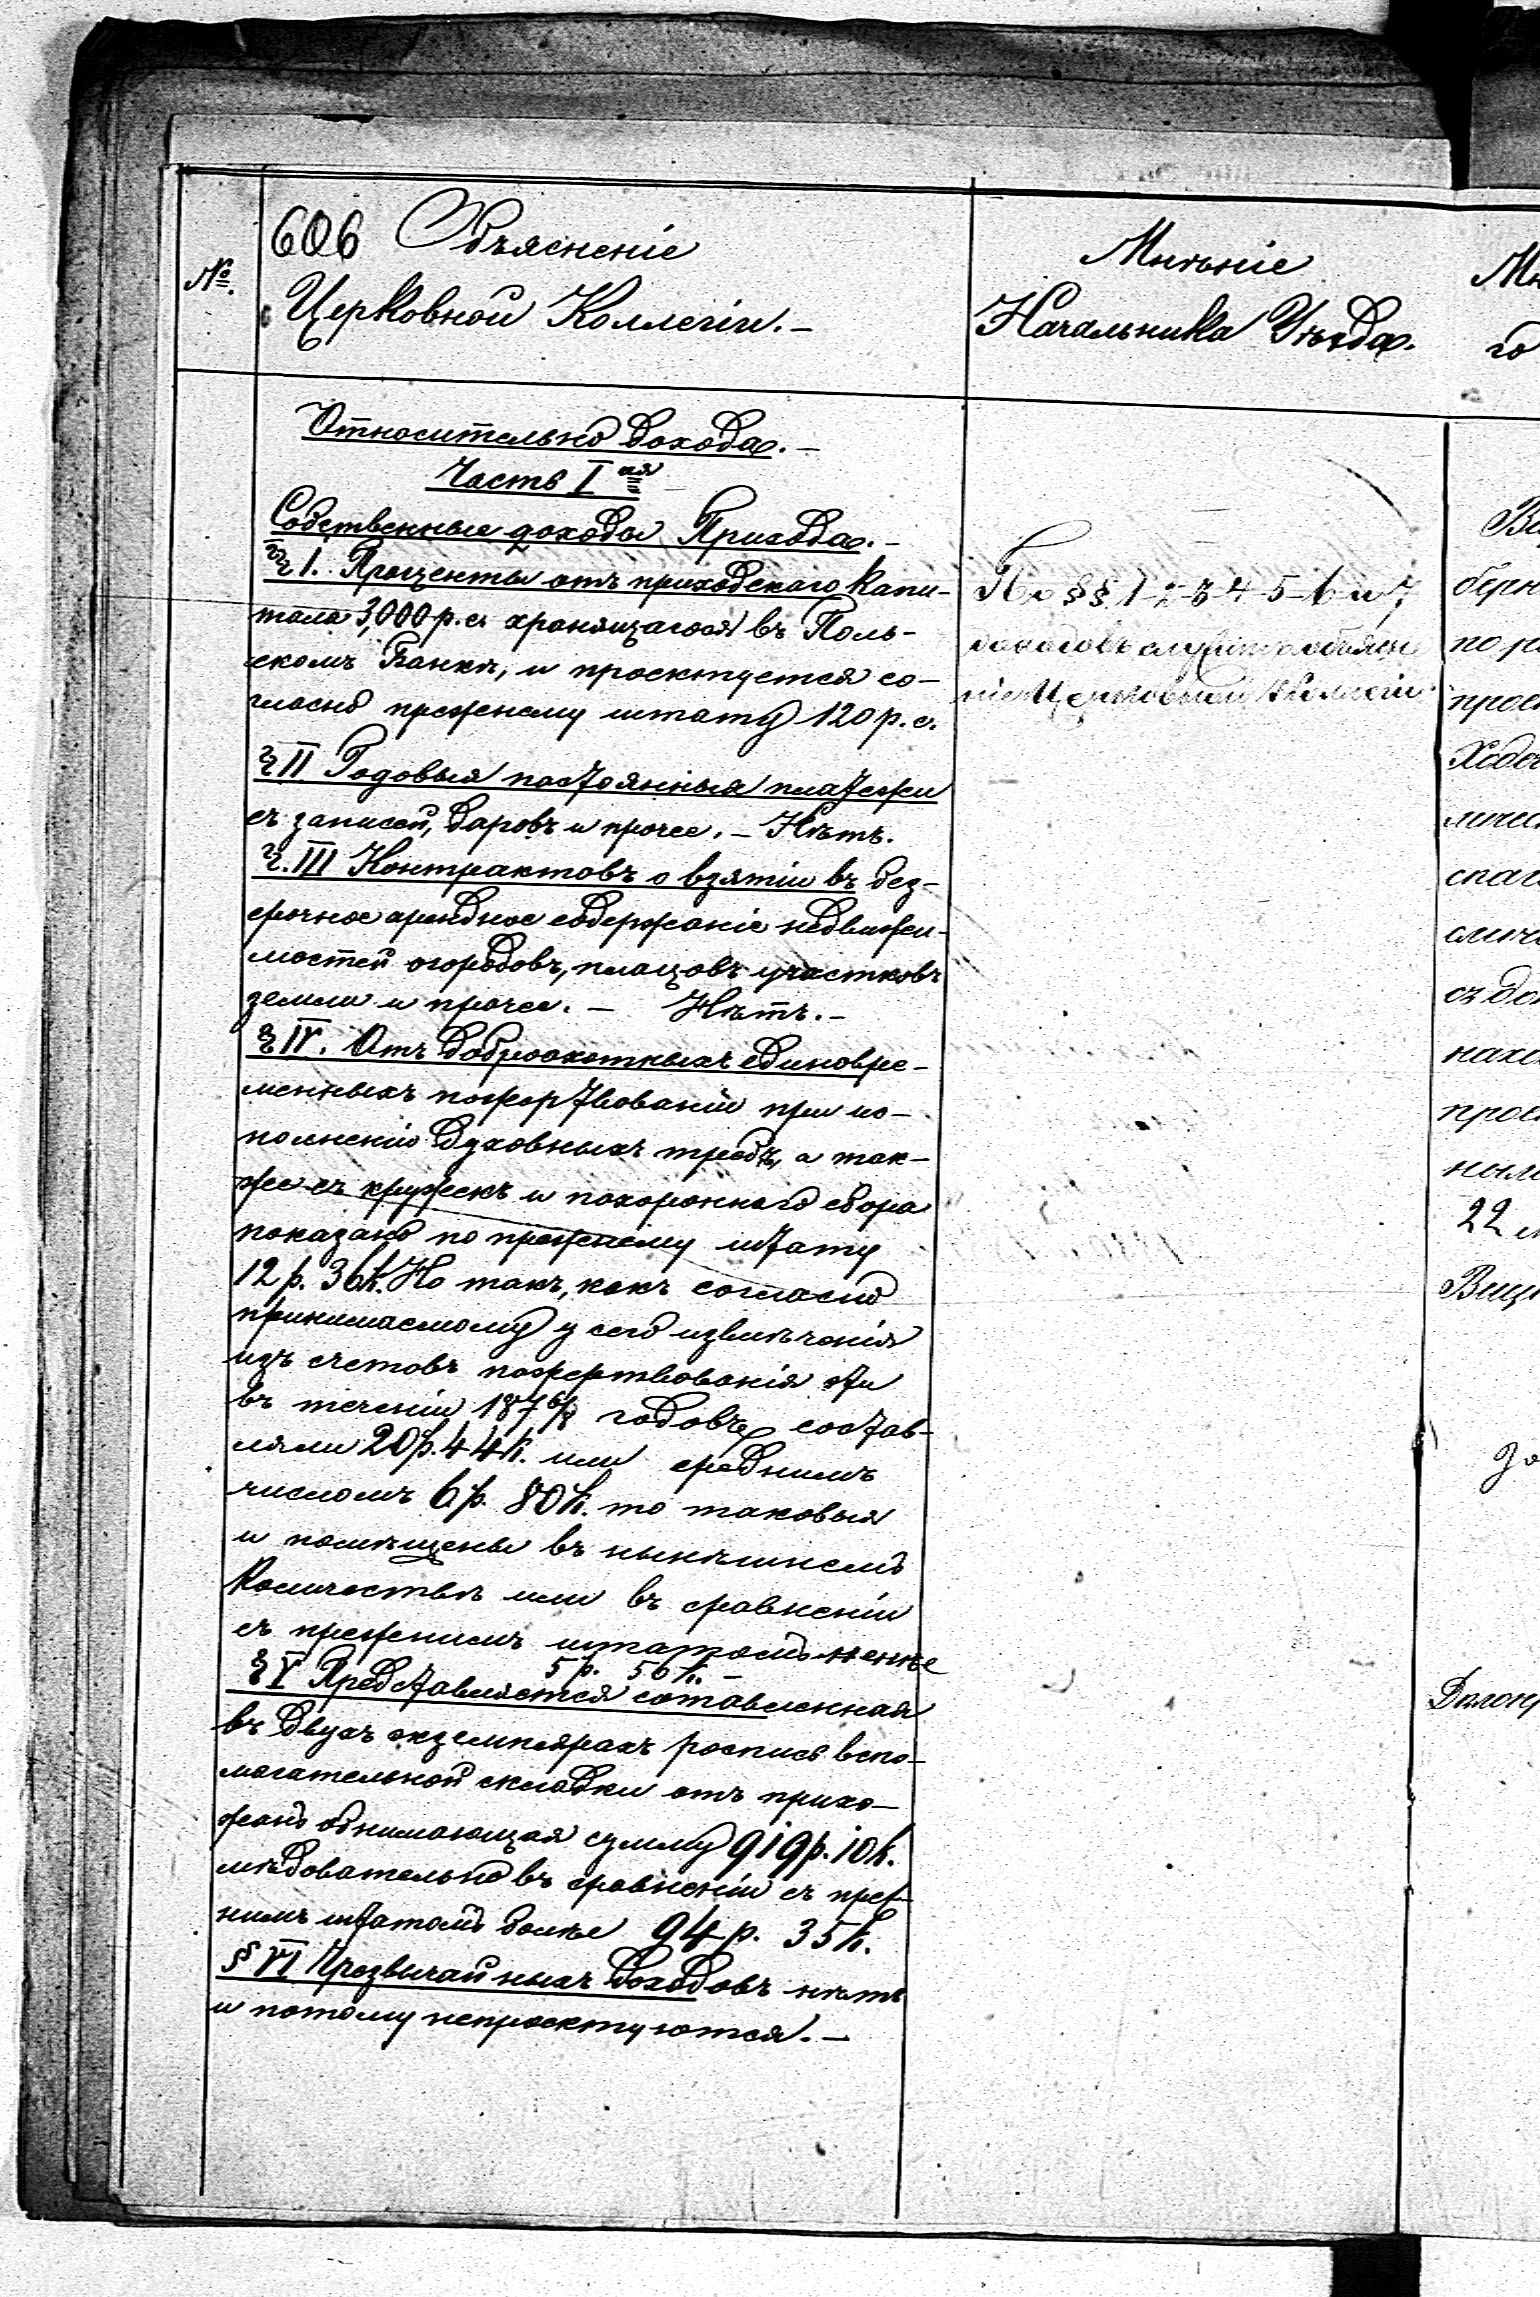 606 Объясненіе
№
Церковной Коллегіи. –
Мнѣніе
Начальника Уѣзда.
Относительно дохода. –
Часть I ая
Собственные доходы Прихода. –
§ I. Проценты отъ приходскаго капи-
тала 3,000 р. с. хранящагося въ Поль-
скомъ Банкѣ, и проектуется со-
гласно прежнему штату 120 р. с.
§ II Годовыя постоянныя платежи
съ записей, даровъ и прочее. – Нѣтъ.
§. III Контрактовъ о взятіи въ без-
срочное арендное содержаніе недвижи-
мостей огородовъ, плацовъ участковъ
земли и прочее. – Нѣтъ. –
§ IV. Отъ доброохотныхъ единовре-
менныхъ пожертвованій при ис-
полненіи духовныхъ требъ, а так-
же съ кружекъ и похороннаго сбора
показано по прежнему штату
12 р. 36 к. Но такъ, какъ согласно
принимаемому у сего извлеченія
изъ счетовъ пожертвованія эти
въ теченіи 1876/8 годовъ состав-
ляли 20 р. 44 к. или среднимъ
числомъ 6 р. 80 к. то таковыя
и помѣщены въ нынѣшнемъ
количествѣ или въ сравненіи
съ прежнимъ штатомъ менѣе
5 р. 56 к. –
§ V Представляется составленная
въ двухъ экземплярахъ роспись вспо-
магательной складки отъ прихо-
жанъ обнимающая сумму 919 р. 10 к.
слѣдовательно въ сравненіи съ преж-
нимъ штатомъ болѣе 94 р. 35 к.
§ VI Чрезвычайныхъ доходовъ нѣтъ
и потому непроектуются. –
По §§ 1-2-3-4-5-6 и 7
доходовъ служитъ объясне
ніе Церковной Коллегіи
22